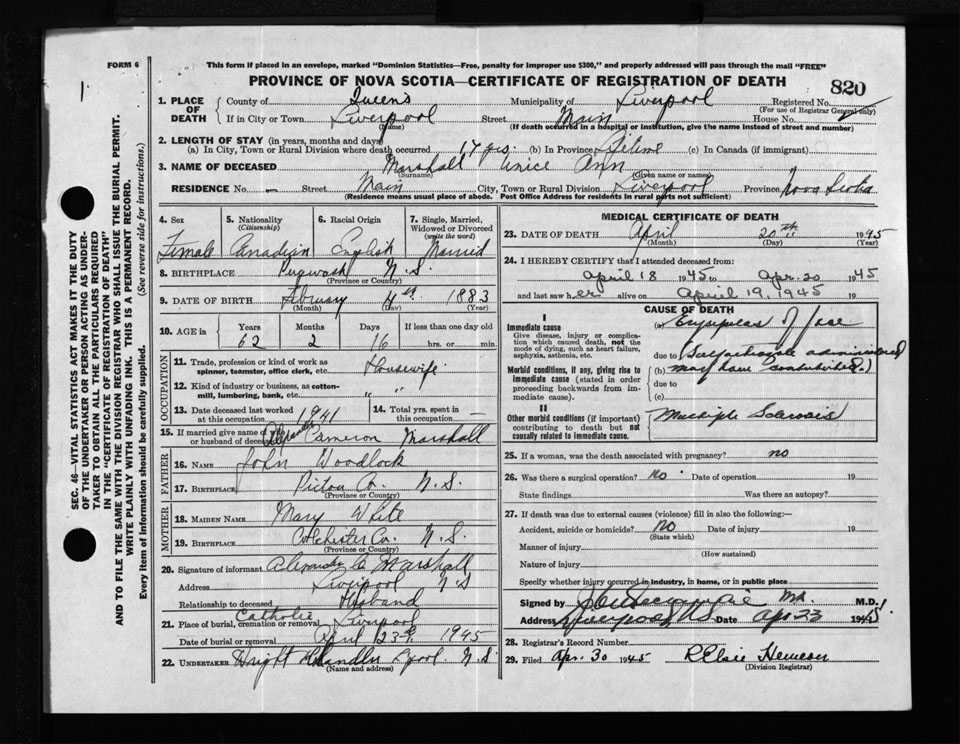 FORM 6
This form if placed in an envelope, marked "Dominion Statistics—Free, penalty for improper use $300," and properly addressed will pass through the mail "FREE"
PROVINCE OF NOVA SCOTIA—CERTIFICATE OF REGISTRATION OF DEATH
820
1. PLACE OF DEATH { County of Queens Municipality of Liverpool Registered No.
(For use of Registrar General only)
If in City or Town Liverpool Street Main House No.
(Name) (If death occurred in a hospital or institution, give the name instead of street and number)
2. LENGTH OF STAY (in years, months and days)
(a) In City, Town or Rural Division where death occurred 14 yrs. (b) In Province Lifetime (c) In Canada (if immigrant)
3. NAME OF DECEASED Marshall Unice Ann
(Surname) (Given name or names)
RESIDENCE No. — Street Main City, Town or Rural Division Liverpool Province Nova Scotia
(Residence means usual place of abode. Post Office Address for residents in rural parts not sufficient)
SEC. 46—VITAL STATISTICS ACT MAKES IT THE DUTY
OF THE UNDERTAKER OR PERSON ACTING AS UNDER-
TAKER TO OBTAIN ALL THE PARTICULARS REQUIRED
IN THE "CERTIFICATE OF REGISTRATION OF DEATH"
AND TO FILE THE SAME WITH THE DIVISION REGISTRAR WHO SHALL ISSUE THE BURIAL PERMIT.
WRITE PLAINLY WITH UNFADING INK. THIS IS A PERMANENT RECORD.
Every item of information should be carefully supplied. (See reverse side for instructions.)
4. Sex 5. Nationality 6. Racial Origin 7. Single, Married,
(Citizenship) Widowed or Divorced
(write the word)
Female Canadian English Married
8. BIRTHPLACE Pugwash N.S.
(Province or Country)
9. DATE OF BIRTH February 4th 1883
(Month) (Day) (Year)
10. AGE in Years Months Days If less than one day old
62 2 16 hrs. or min.
OCCUPATION
11. Trade, profession or kind of work as Housewife
spinner, teamster, office clerk, etc.
12. Kind of industry or business, as cotton-
mill, lumbering, bank, etc. "
13. Date deceased last worked at this occupation 1941 14. Total yrs. spent in this occupation —
15. If married give name of wife or husband of deceased Alexander Cameron Marshall
FATHER
16. NAME John Woodlock
17. BIRTHPLACE Pictou Co. N.S.
(Province or Country)
MOTHER
18. MAIDEN NAME Mary White
19. BIRTHPLACE Colchester Co. N.S.
(Province or Country)
20. Signature of informant Alexander C Marshall
Address Liverpool N.S
Relationship to deceased Husband
21. Place of burial, cremation or removal Catholic Liverpool
Date of burial or removal April 23rd 1945
22. UNDERTAKER Wright Chandler Lpool N.S
(Name and address)
MEDICAL CERTIFICATE OF DEATH
23. DATE OF DEATH April 20th 1945
(Month) (Day) (Year)
24. I HEREBY CERTIFY that I attended deceased from:
April 18 1945 to Apr. 20 1945
and last saw her alive on April 19, 1945 19
CAUSE OF DEATH
I
Immediate cause
Give disease, injury or complica-
tion which caused death, not the
mode of dying, such as heart failure,
asphyxia, asthenia, etc.
(a) Erysipelas of face
due to (Sulfathiazole administered
Morbid conditions, if any, giving rise to
immediate cause (stated in order
proceeding backwards from im-
mediate cause).
(b) may have contributed.)
due to
(c)
II
Other morbid conditions (if important)
contributing to death but not
causally related to immediate cause.
Multiple Sclerosis
25. If a woman, was the death associated with pregnancy? no
26. Was there a surgical operation? No Date of operation 19
State findings Was there an autopsy?
27. If death was due to external causes (violence) fill in also the following:—
Accident, suicide or homicide? NO Date of injury 19
(State which)
Manner of injury
(How sustained)
Nature of injury
Specify whether injury occurred in industry, in home, or in public place
Signed by M.D.
Address Liverpool NS Date Apr 23 1945
28. Registrar's Record Number
29. Filed Apr. 30 1945 R Elsie
(Division Registrar)